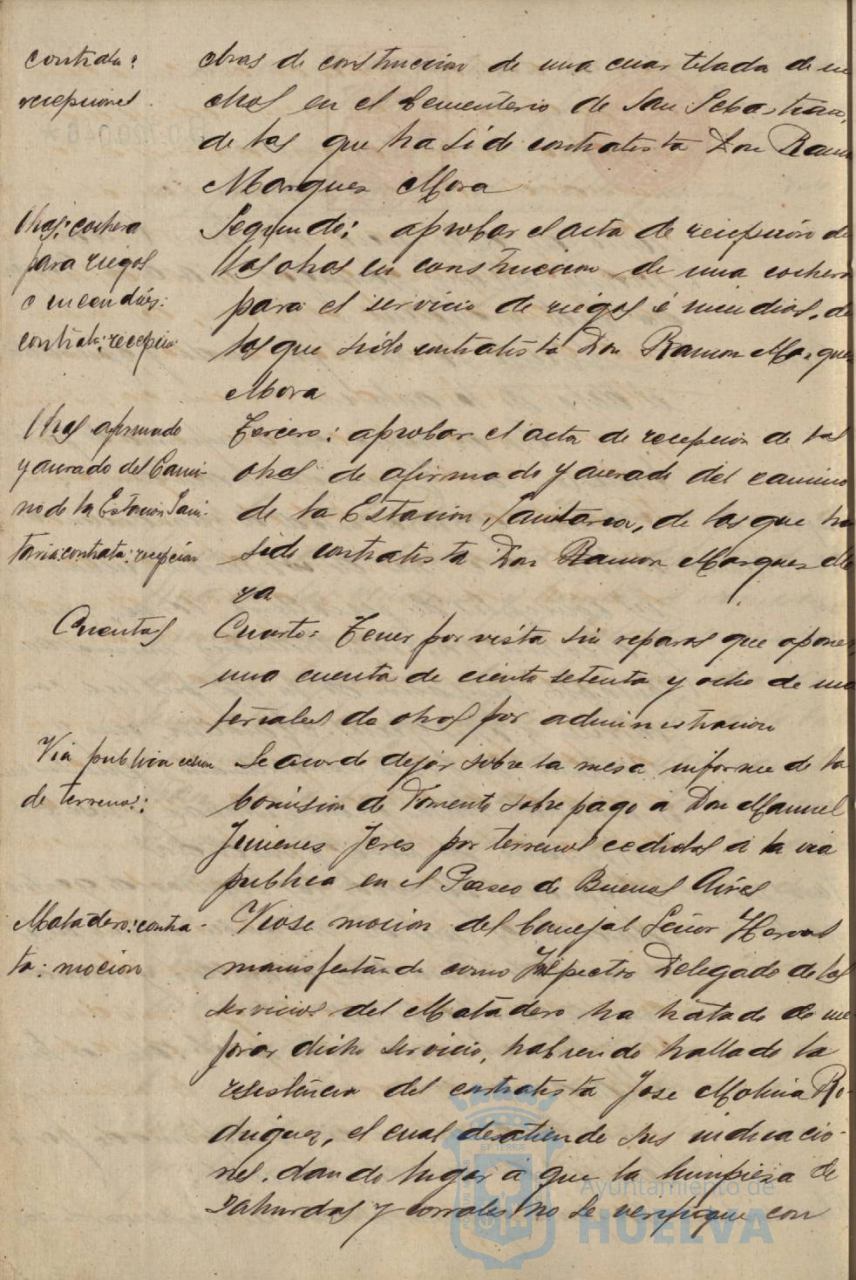 contrata:
recepciones.
obras de construccion de una cuartelada de ni
chos en el Cementerio de San Sebastian,
de las que ha sido contratista Don Ramon
Marquez Mora
Obras: cochera
para riegos
e incendios:
contrata: recepcion
Segundo: aprobar el acta de recepción de
las obras en construccion de una cochera
para el servicio de riegos é incendios, de
las que sido contratista Don Ramon Marquez
Mora
Obras afirmado
y acerado del Cami-
no de la Estacion Sani-
taria: contrata: recepcion
Tercero: aprobar el acta de recepcion de las
obras de afirmado y acerado del camino
de la Estacion Sanitaria, de las que ha
sido contratista Don Ramon Marquez Mo
ra
Cuentas
Cuarto: Tener por vista sin reparos que oponer,
una cuenta de ciento setenta y ocho de ma
teriales de obras por administracion
Via publica: cesion
de terrenos:
Se acordo dejar sobre la mesa informe de la
Comision de Fomento sobre pago a Don Manuel
Jimenes Jeres por terrenos cedidos a la via
publica en el Paseo de Buenos Aires
Matadero: contra-
ta: mocion
Viose mocion del Concejal Señor
manifestando como Inspector Delegado de los
servicios del Matadero ha tratado de me-
jorar dicho servicio, habiendo hallado la
resistencia del contratista Jose Molina Ro-
driguez, el cual desatiende sus indicacio-
nes, dando lugar á que la limpieza de
zahurdas y corrales no se verifique con
Ayuntamiento de
HUELVA